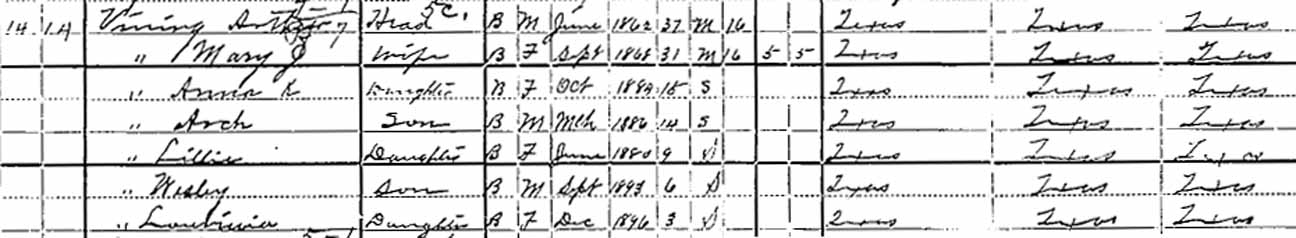 14 14 Vining Arthur Head B M June 1862 37 M 16 Texas Texas Texas
" Mary J Wife B F Sept 1868 31 M 16 5 5 Texas Texas Texas
" Anna K Daughter B F Oct 1884 15 S Texas Texas Texas
" Arch Son B M Mch 1886 14 S Texas Texas Texas
" Lillie Daughter B F June 1890 9 S Texas Texas Texas
" Wesley Son B M Sept 1893 6 S Texas Texas Texas
" Daughter B F Dec 1896 3 S Texas Texas Texas